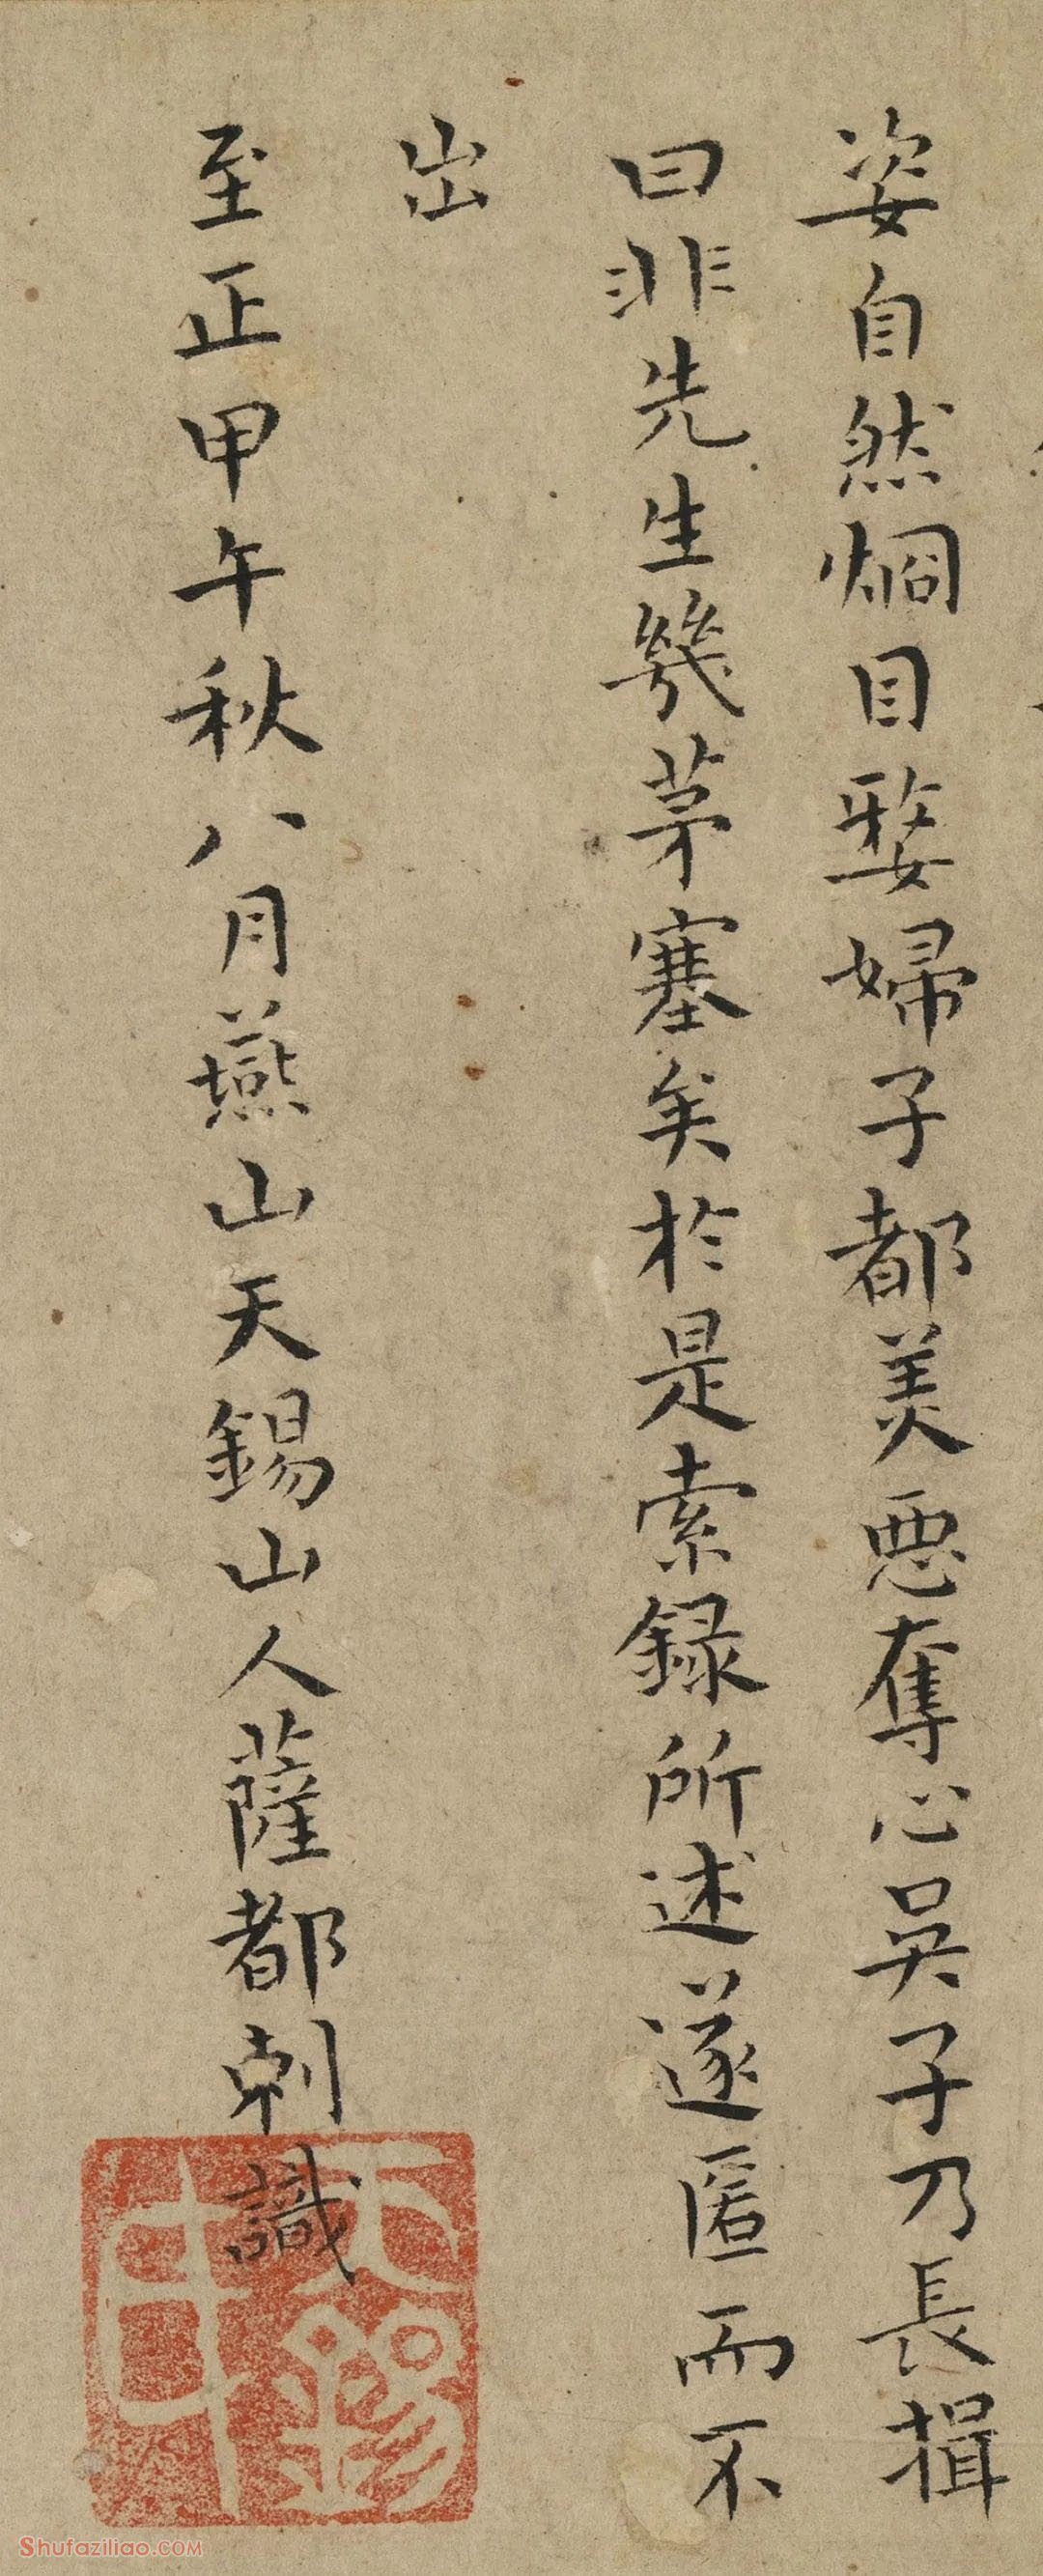 姿自然烱目婺婦子都美悪奪心吳子乃長揖
曰非先生幾茅塞矣於是索録所述遂匿而不
出
至正甲午秋八月燕山天錫山人薩都剌識
天錫
Shufaziliao.COM